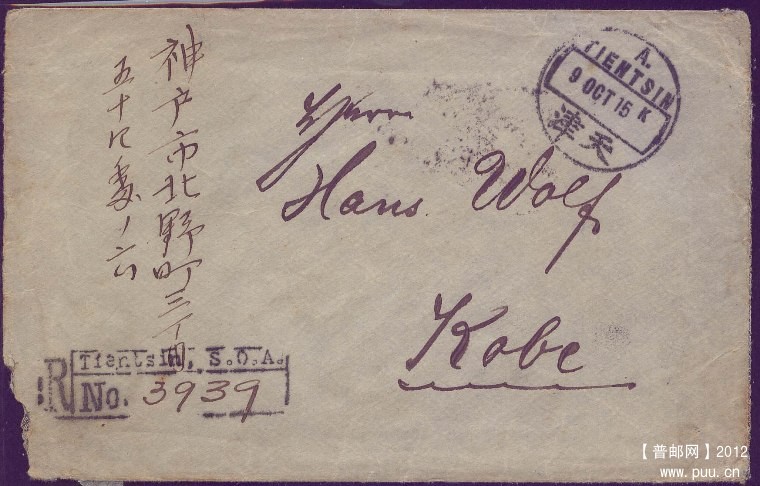 神戸市北野町三丁目
五十八番ノ六
Herrn
Hans Wolf
Kobe
A.
TIENTSIN
9 OCT 15 K
天津
R Tientsin, S.O.A.
No. 3939
【普邮网】2012
www.puu.cn